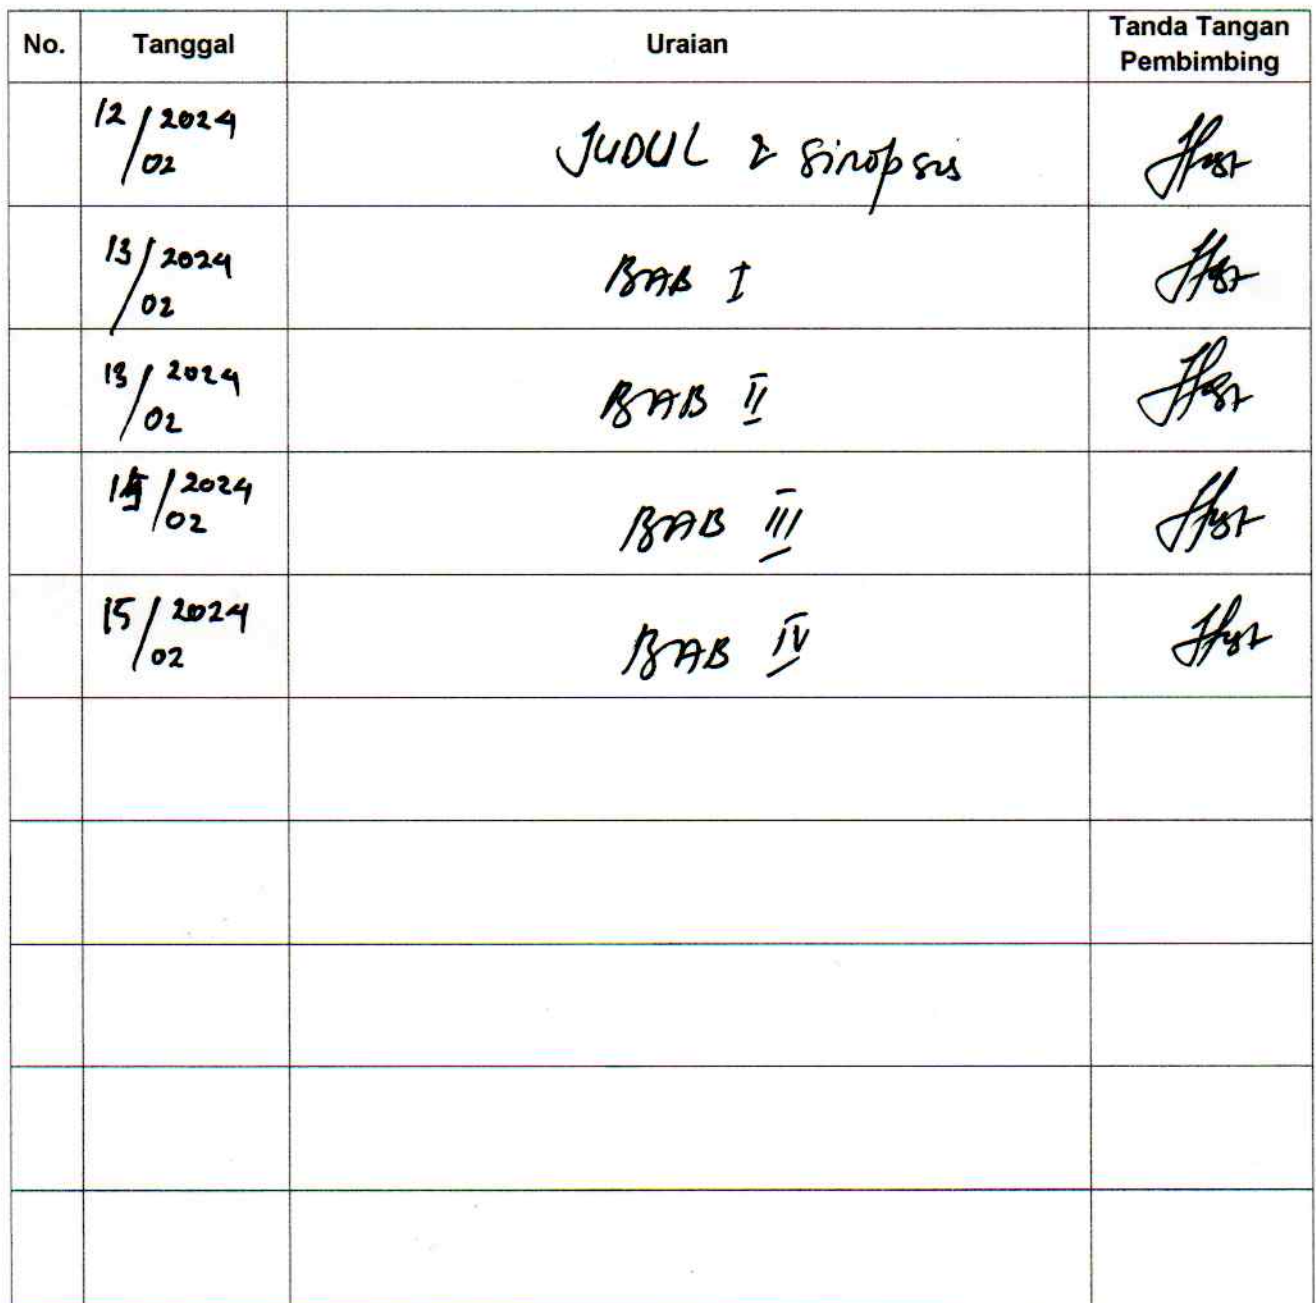 No. Tanggal Uraian Tanda Tangan
Pembimbing
12/2024
02 JUDUL & Sinopsis
13/2024
02 BAB I
13/2024
02 BAB II
/2024
02 BAB III
15/2024
02 BAB IV